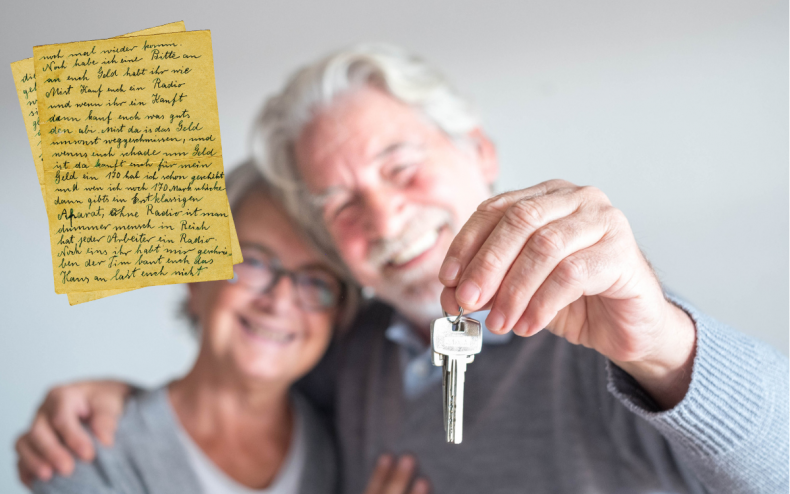 noch mal wieder komm.
Noch habe ich eine Bitte an
an euch Geld habt ihr wie
Mist Kauf euch ein Radio
und wenn ihr ein Kauft
dann kauf euch was guts
den abr Mist da is das Geld
umsonst weggeschmissen, und
wenns euch schade um Geld
ist da kauft euch für mein
Geld ein 170 hab ich schon geschikt
und wen ich noch 170 Mark schicke
dann gibts ein erstklassigen
Aparat, Ohne Radio ist man
dummer mensch in Reich
hat jeder Arbeiter ein Radio.
Noch eins ihr habt mir geschrie-
ben der Jim baut euch das
Haus an last euch nicht
die